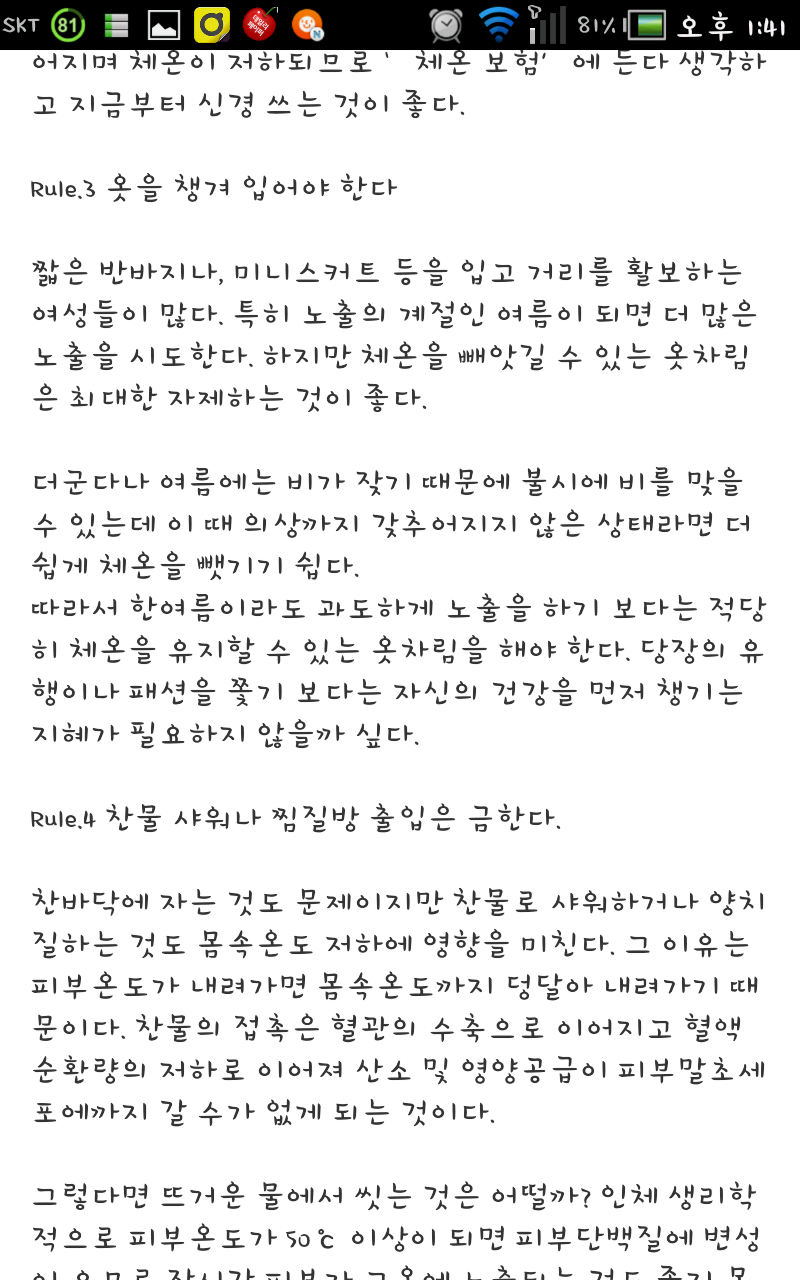 SKT 81 81% 오후 1:41
어지며 체온이 저하되므로 ' 체온 보험' 에 든다 생각하
고 지금부터 신경 쓰는 것이 좋다.
Rule.3 옷을 챙겨 입어야 한다
짧은 반바지나, 미니스커트 등을 입고 거리를 활보하는
여성들이 많다. 특히 노출의 계절인 여름이 되면 더 많은
노출을 시도한다. 하지만 체온을 빼앗길 수 있는 옷차림
은 최대한 자제하는 것이 좋다.
더군다나 여름에는 비가 잦기 때문에 불시에 비를 맞을
수 있는데 이 때 의상까지 갖추어지지 않은 상태라면 더
쉽게 체온을 뺏기기 쉽다.
따라서 한여름이라도 과도하게 노출을 하기 보다는 적당
히 체온을 유지할 수 있는 옷차림을 해야 한다. 당장의 유
행이나 패션을 쫓기 보다는 자신의 건강을 먼저 챙기는
지혜가 필요하지 않을까 싶다.
Rule.4 찬물 샤워나 찜질방 출입은 금한다.
찬바닥에 자는 것도 문제이지만 찬물로 샤워하거나 양치
질하는 것도 몸속온도 저하에 영향을 미친다. 그 이유는
피부온도가 내려가면 몸속온도까지 덩달아 내려가기 때
문이다. 찬물의 접촉은 혈관의 수축으로 이어지고 혈액
순환량의 저하로 이어져 산소 및 영양공급이 피부말초세
포에까지 갈 수가 없게 되는 것이다.
그렇다면 뜨거운 물에서 씻는 것은 어떨까? 인체 생리학
적으로 피부온도가 50℃ 이상이 되면 피부단백질에 변성